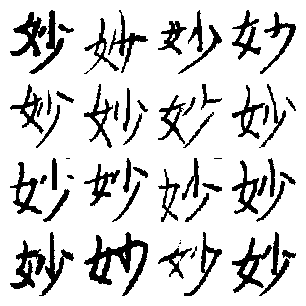 妙妙妙妙
妙妙妙妙
妙妙妙妙
妙妙妙妙